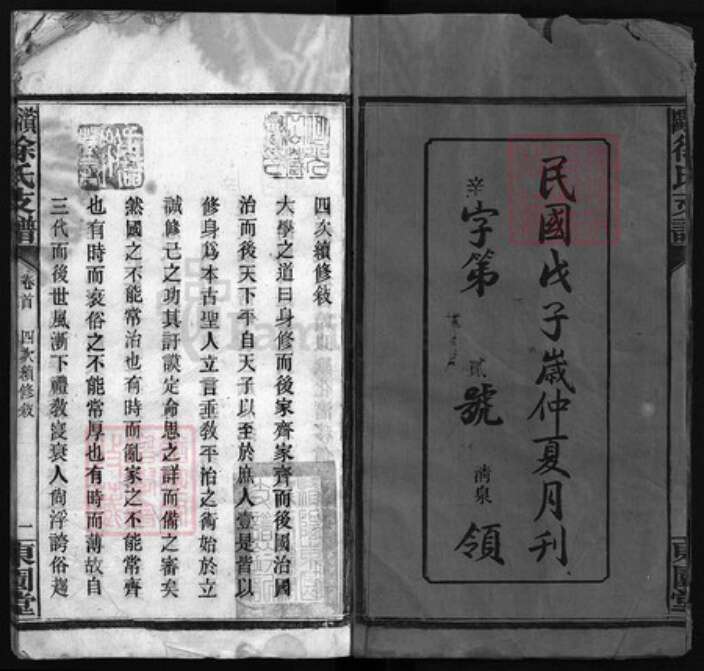 民國戊子歲仲夏月刊
辛字第貳號清泉領
徐氏支譜
東園堂
四次續修敘
大學之道曰身修而後家齊家齊而後國治國
治而後天下平自天子以至於庶人壹是皆以
修身爲本古聖人立言垂教平治之術始於立
誠修己之功其訏謨定命思之詳而備之審矣
然國之不能常治也有時而亂家之不能常齊
也有時而衰俗之不能常厚也有時而薄故自
三代而後世風漸下禮教寖衰人尙浮誇俗趨
續徐氏支譜
卷首
四次續修敘
一
東園堂